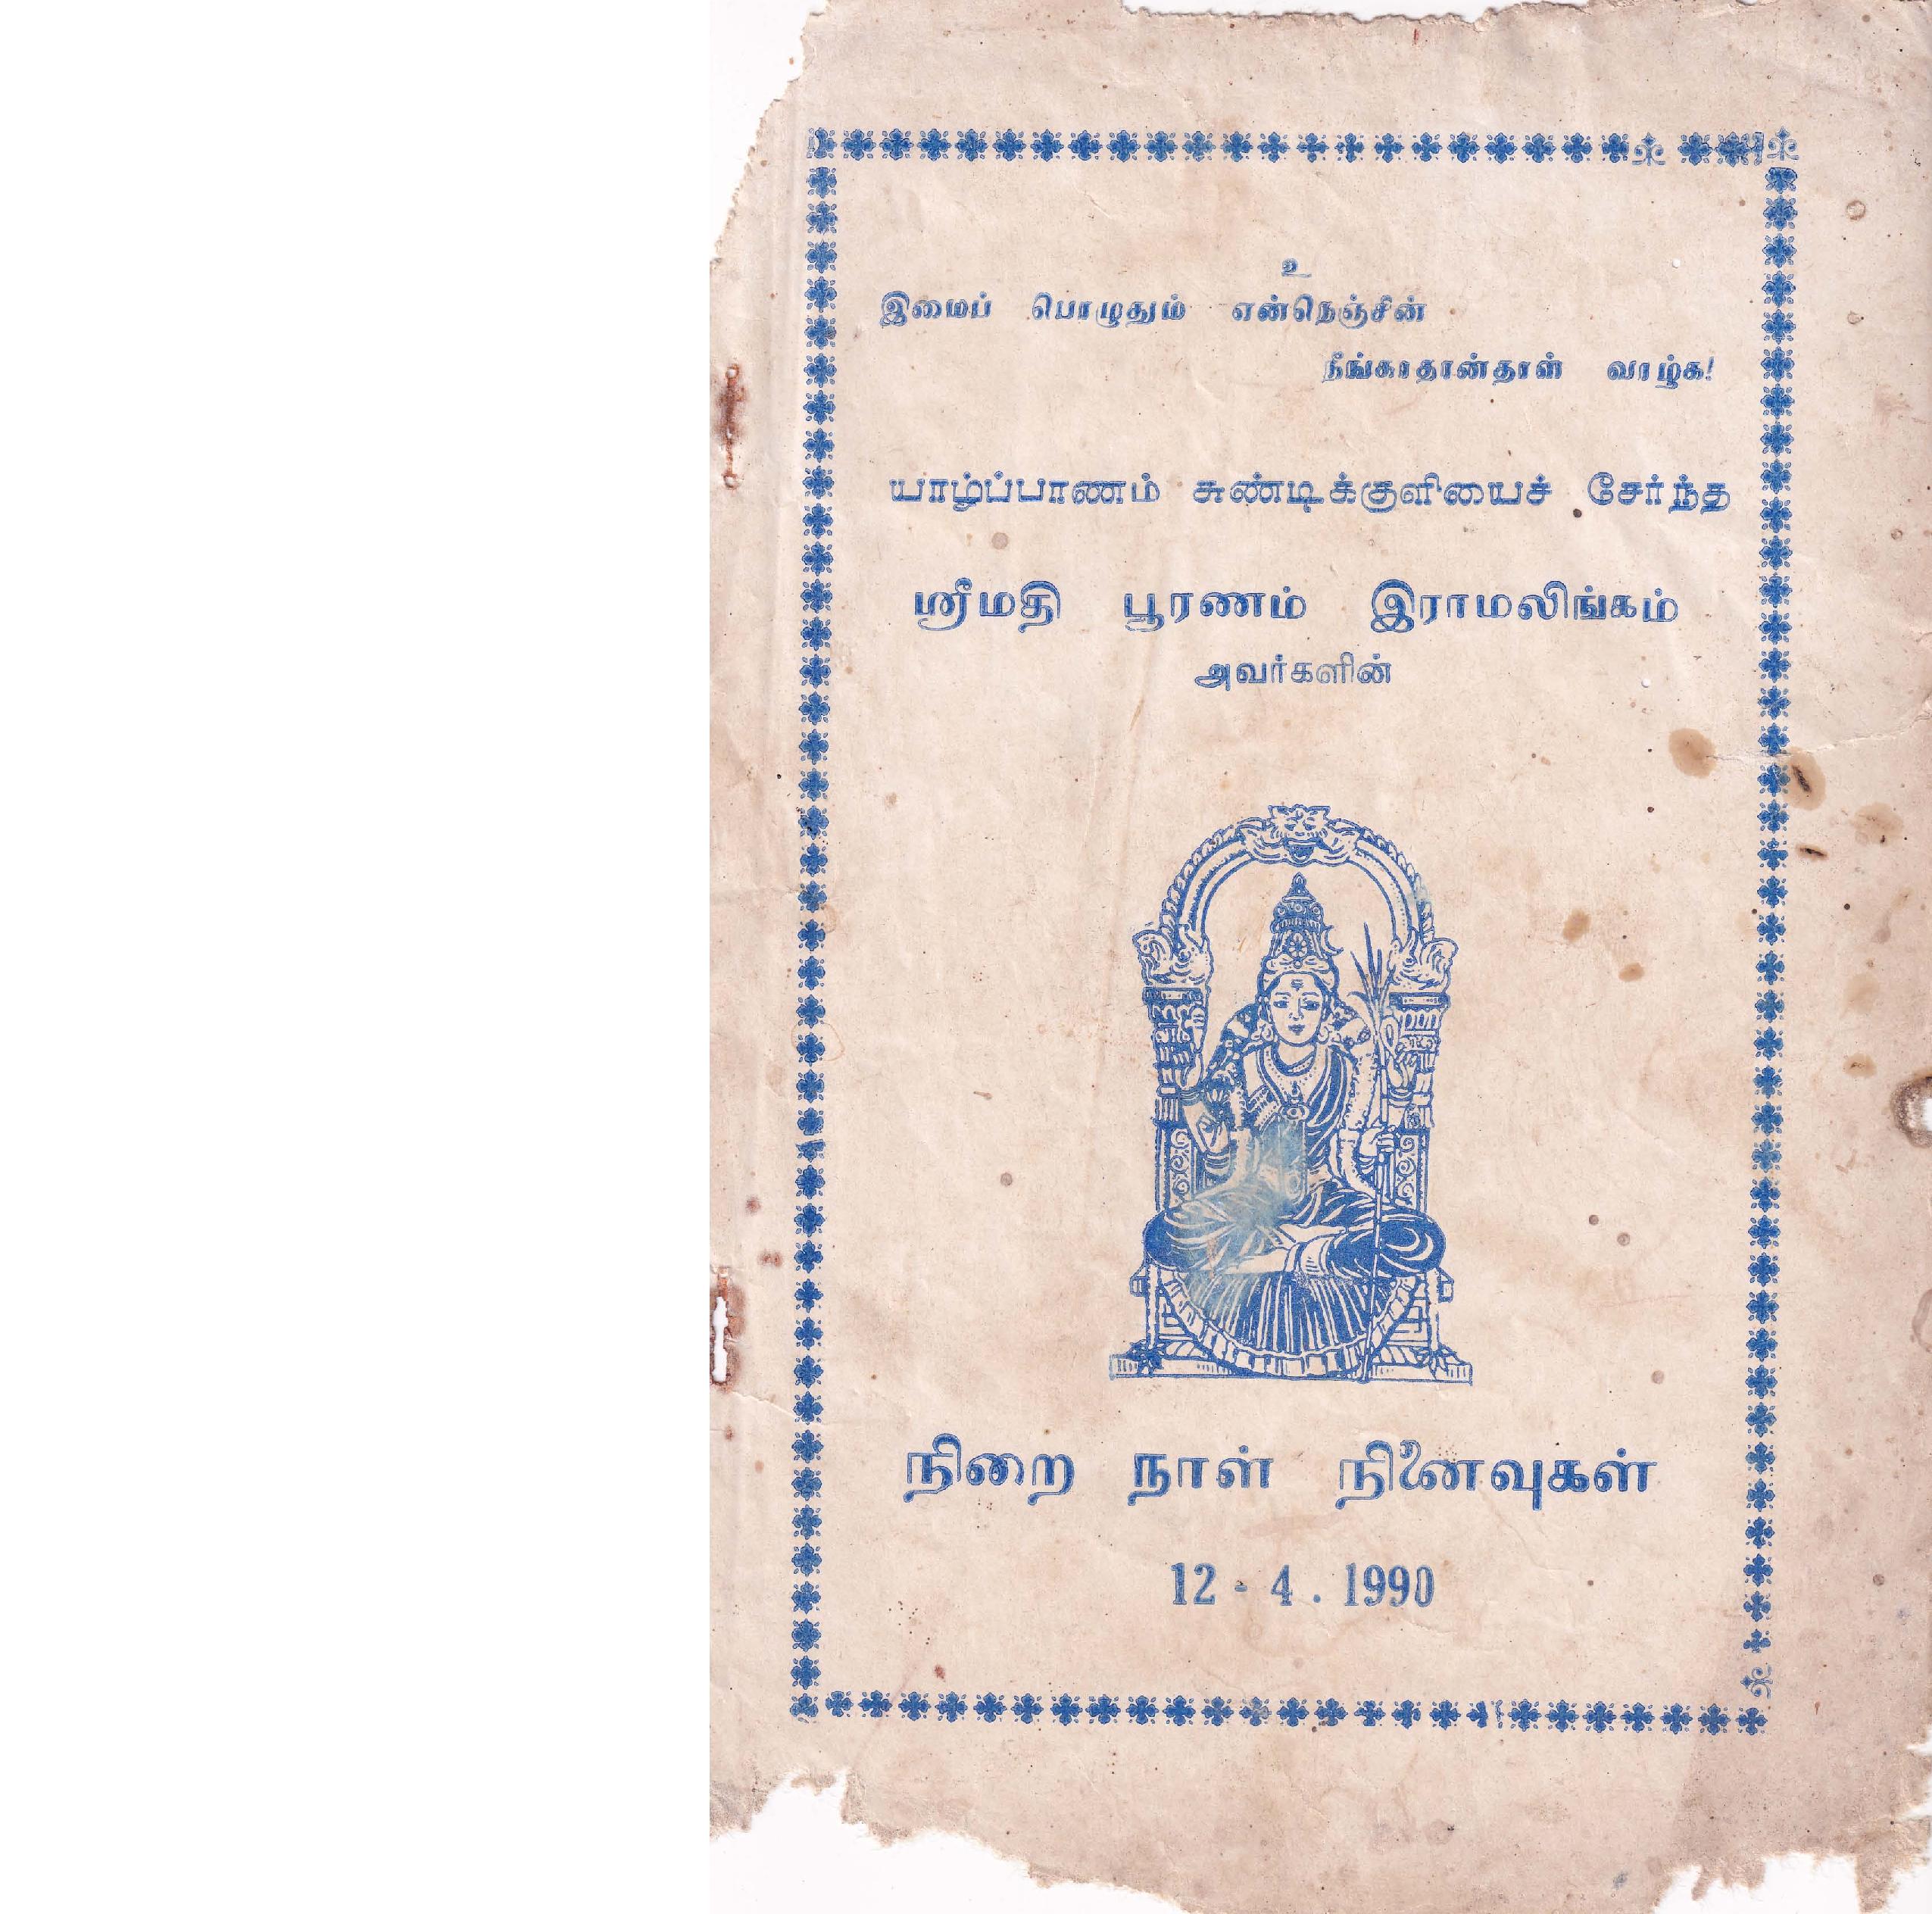 உ
இமைப் பொழுதும் என்நெஞ்சின்
நீங்காதான்தாள் வாழ்க!
யாழ்ப்பாணம் சுண்டிக்குளியைச் சேர்ந்த
ஸ்ரீமதி பூரணம் இராமலிங்கம்
அவர்களின்
நிறை நாள் நினைவுகள்
12 - 4 . 1990